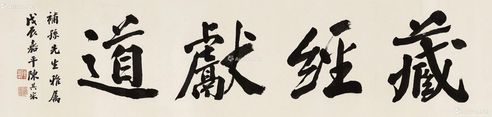 藏經獻道
補孫先生雅屬
戊辰嘉平陳其采